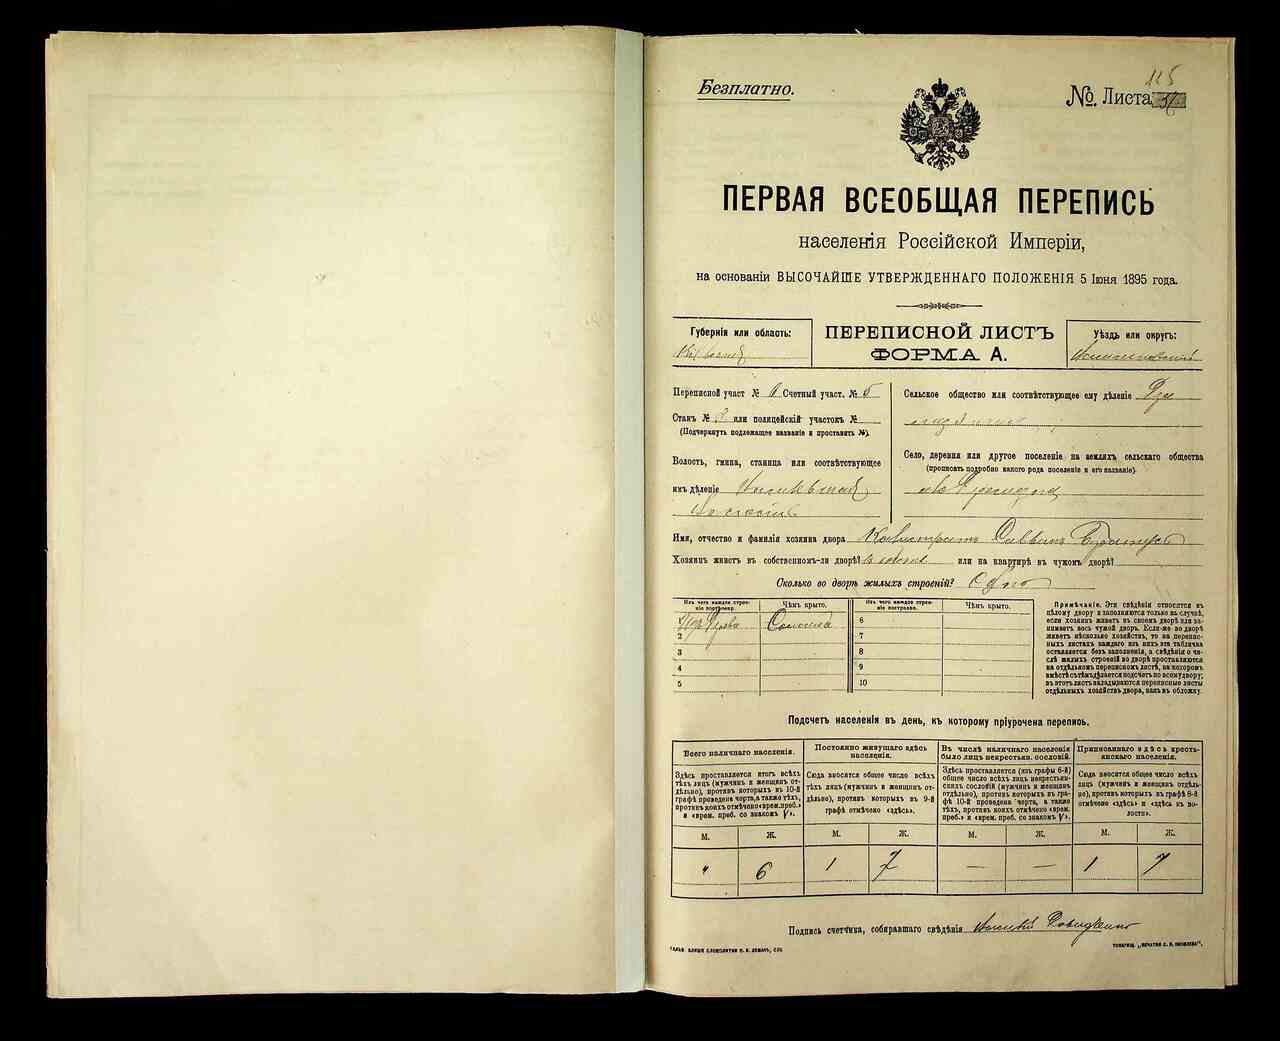 Безплатно.
№ Листа 115
ПЕРВАЯ ВСЕОБЩАЯ ПЕРЕПИСЬ
населенія Россійской Имперіи,
на основаніи ВЫСОЧАЙШЕ УТВЕРЖДЕННАГО ПОЛОЖЕНІЯ 5 Іюня 1895 года.
Губернія или область:
ПЕРЕПИСНОЙ ЛИСТЪ
ФОРМА А.
Уѣздъ или округъ:
Переписной участ. № Счетный участ. №
Станъ № или полицейскій участокъ №
(Подчеркнуть подлежащее названіе и проставить №).
Волость, гмина, станица или соотвѣтствующее
имъ дѣленіе
Сельское общество или соотвѣтствующее ему дѣленіе
Село, деревня или другое поселеніе на земляхъ сельскаго общества
(прописать подробно какого рода поселеніе и его названіе).
Имя, отчество и фамилія хозяина двора
Хозяинъ живетъ въ собственномъ-ли дворѣ? или на квартирѣ въ чужомъ дворѣ?
Сколько во дворѣ жилыхъ строеній? Одно
Изъ чего каждое строеніе построено.
Чѣмъ крыто.
Изъ чего каждое строеніе построено.
Чѣмъ крыто.
1 Изъ дерева Солома 6
2 7
3 8
4 9
5 10
Примѣчаніе. Эти свѣдѣнія относятся къ
цѣлому двору и заполняются только въ случаѣ,
если хозяинъ живетъ въ своемъ дворѣ или занимаетъ
весь чужой дворъ. Если-же во дворѣ
живетъ нѣсколько хозяйствъ, то на переписныхъ
листахъ каждаго изъ нихъ эта табличка
оставляется безъ заполненія, а свѣдѣнія о числѣ
жилыхъ строеній во дворѣ проставляются
на отдѣльномъ переписномъ листѣ, на которомъ
вмѣстѣ съ тѣмъ дѣлается подсчетъ по всему двору;
въ этотъ листъ вкладываются переписные листы
отдѣльныхъ хозяйствъ двора, какъ въ обложку.
Подсчетъ населенія въ день, къ которому пріурочена перепись.
Всего наличнаго населенія.
Здѣсь проставляется итогъ всѣхъ
тѣхъ лицъ (мужчинъ и женщинъ отдѣльно),
противъ которыхъ въ 10-й
графѣ проведена черта, а также тѣхъ,
противъ коихъ отмѣчено «врем. преб.»
и «врем. преб. со знакомъ V».
Постоянно живущаго здѣсь
населенія.
Сюда вносится общее число всѣхъ
тѣхъ лицъ (мужчинъ и женщинъ отдѣльно),
противъ которыхъ въ 9-й
графѣ отмѣчено «здѣсь».
Въ числѣ наличнаго населенія
было лицъ некрестьян. сословій.
Здѣсь проставляется (изъ графы 6-й)
общее число всѣхъ лицъ некрестьянскихъ
сословій (мужчинъ и женщинъ
отдѣльно), противъ которыхъ въ графѣ
10-й проведена черта, а также
тѣхъ, противъ коихъ отмѣчено «врем.
преб.» и «врем. преб. со знакомъ V».
Приписаннаго здѣсь крестьянскаго
населенія.
Сюда вносится общее число всѣхъ
лицъ (мужчинъ и женщинъ отдѣльно),
противъ которыхъ въ графѣ 8-й
отмѣчено «здѣсь» и «здѣсь къ волости».
М. Ж. М. Ж. М. Ж. М. Ж.
" 6 1 7 — — 1 7
Подпись счетчика, собиравшаго свѣдѣнія